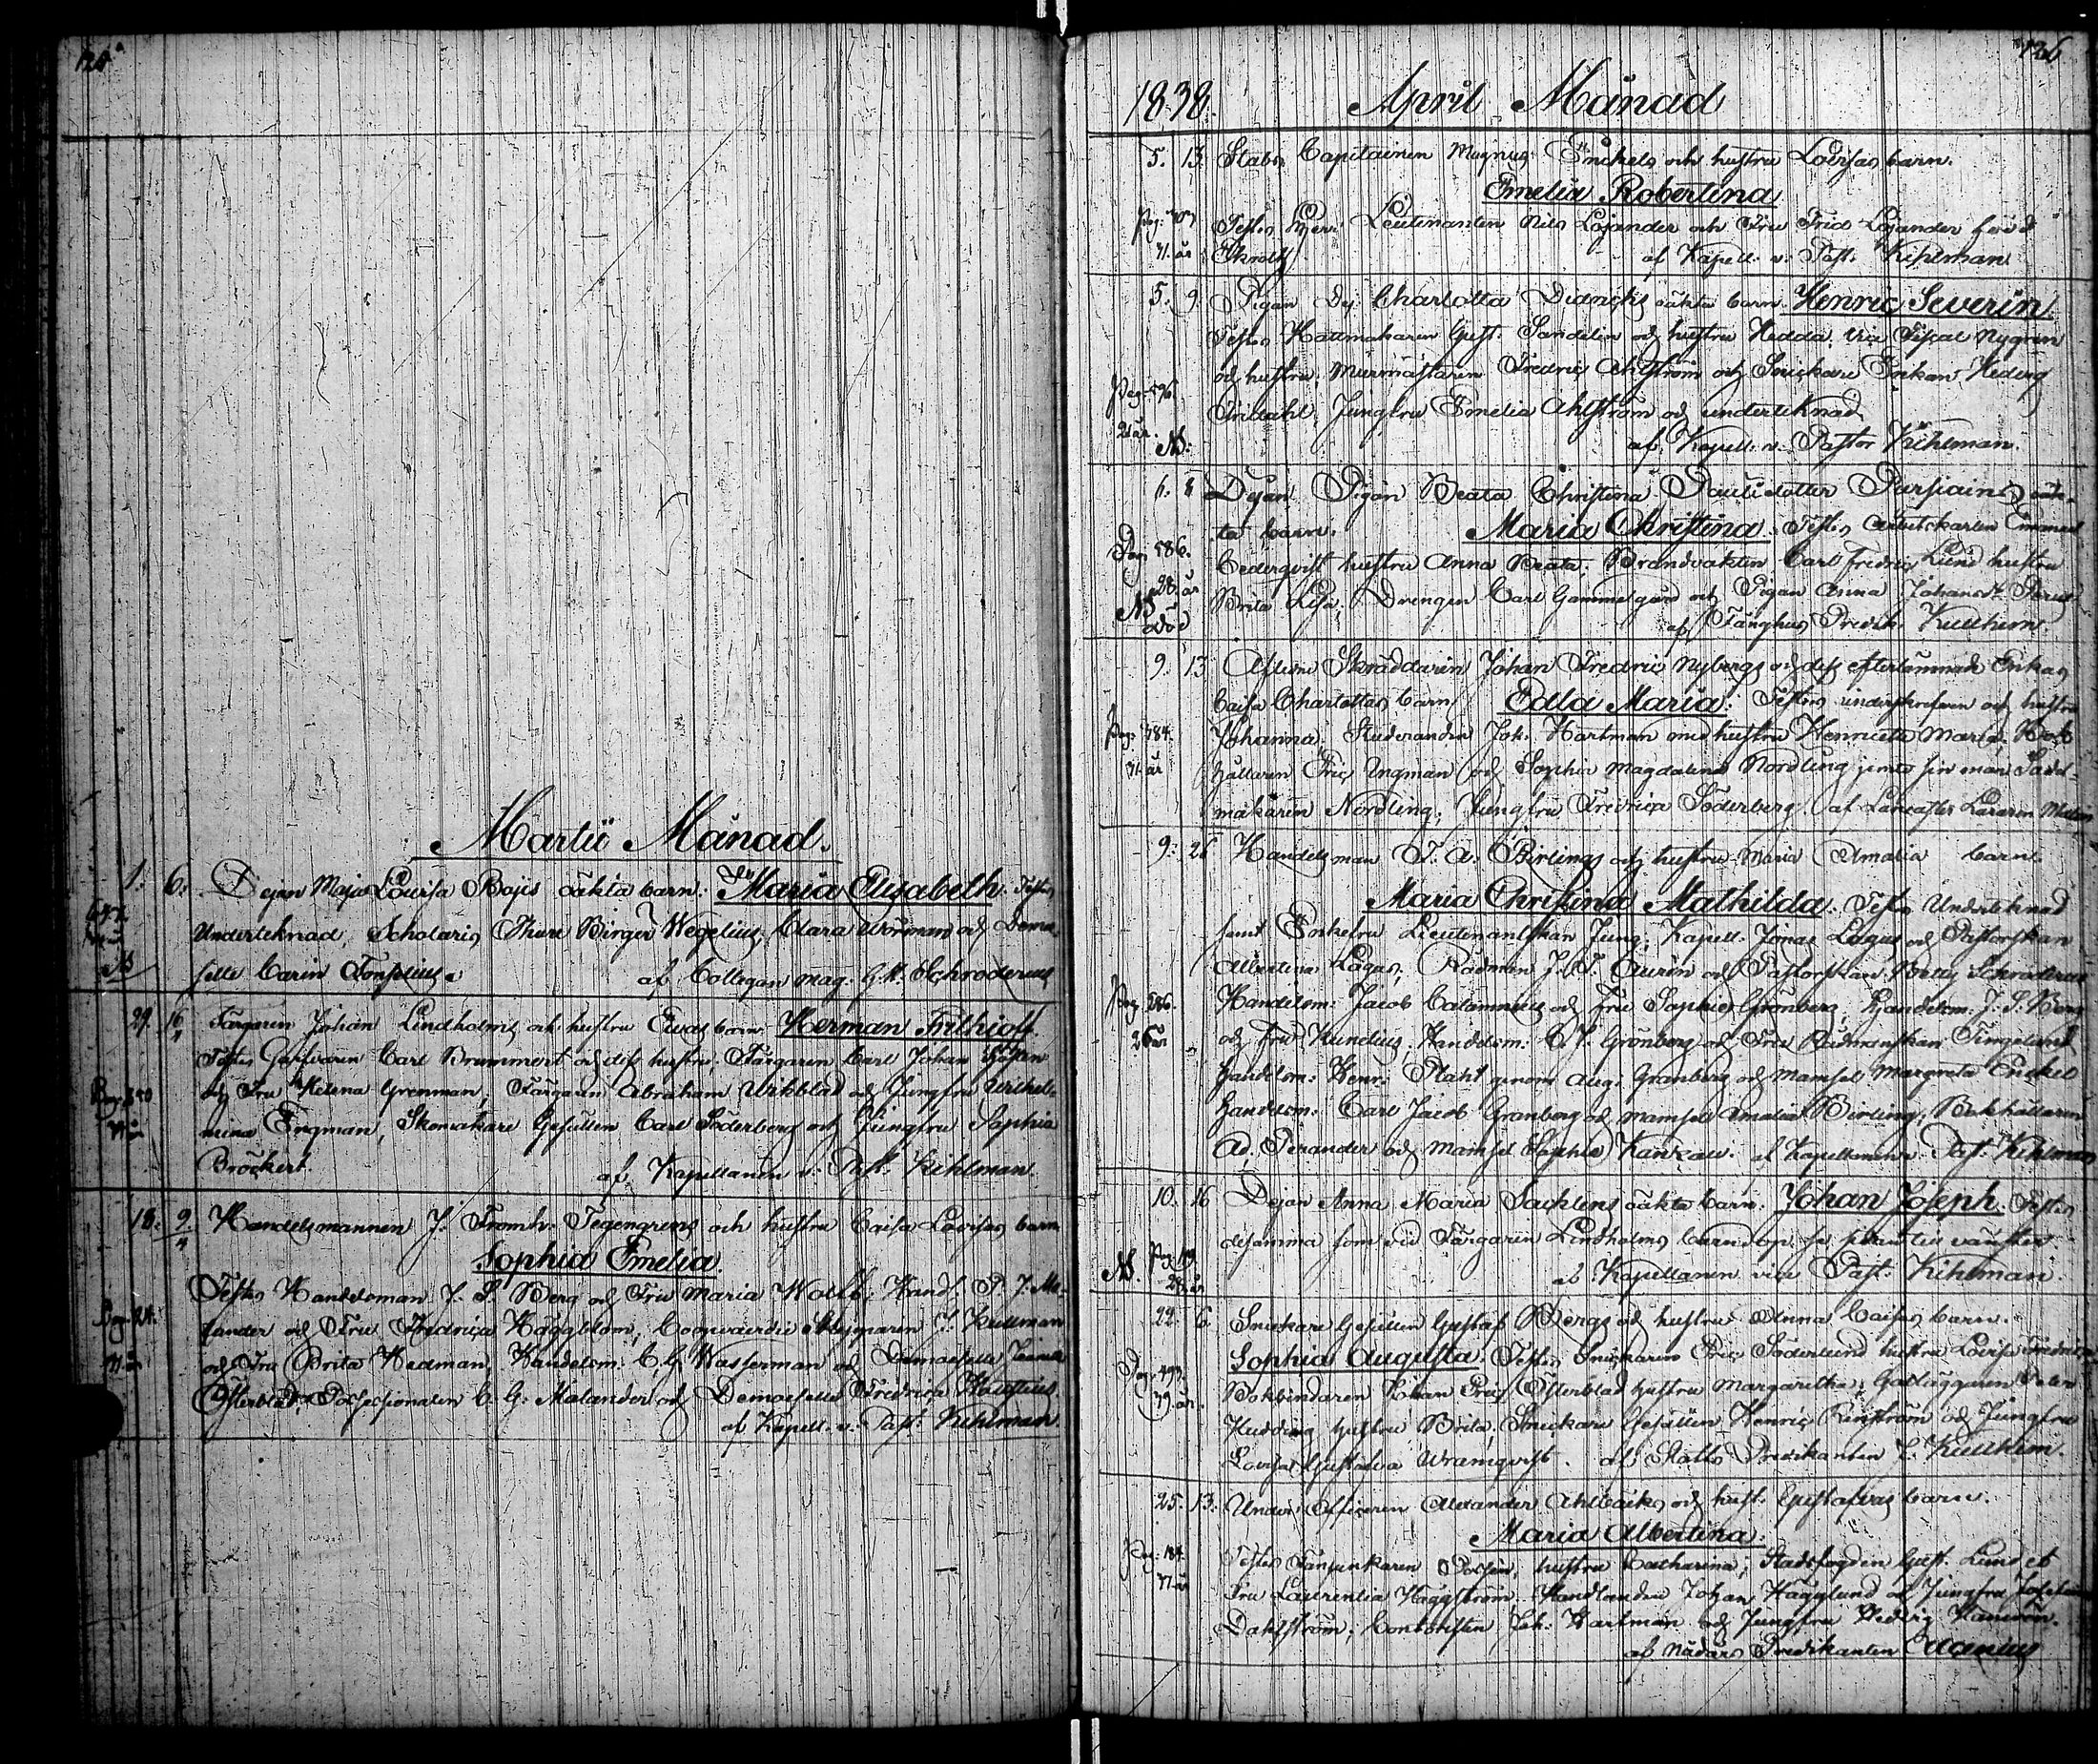 Martii Månad.
1. 6. Dejan Maja Lovisa Bojis oäkta barn: Maria Elisabeth. Testes
Underteknad, Scholaris Thure Birger Wegelius, Clara Wörman och Demoi-
selle Carin
af Collegan mag. G. A. Schroderus
29. 16/4 Färgaren Johan Lindholms och hustru Evas barn. Herman Frithioff.
Testes Garfvaren Carl Brummert och dess hustru, Färgaren Carl Johan
och Fru Helena Grenman, Färgaren Abraham Wikblad och Jungfru Wilhel-
Pag. 350
mina Engman, Skomakare Gesällen Carl Söderberg och Jungfru Sophia
Bröckert.
af Kapellanen v. Past. Kihlman.
18. 9/4 Handelsmannen J. Fromh: Tegengrens och hustru Caisa Lovisas barn
Sophia Emelia.
Testes Handelsman J. S. Berg och Fru Maria Wolff, Hand. P. J. Me-
lander och Fru Fredrica Häggblom, Coopvaerdie Skepparen J. Kullman
och Fru Brita Hedman, Handelsm: C. G. Wasserman och Demoiselle
Österblad, Possessionaten C. G. Malander och Demoiselle Fredrica
af Kapell. v. Past. Kihlman
136
1838. April Månad
5. 13. Stabs Capitainen Magnus Enckels och hustru Lovisas barn.
Emelia Robertina
Testes Herr Lieutenanten Nils Löjander och Fru Löjander född
71. år Ekroth
af Kapell. v. Past. Kihlman
5. 9. Pigan Dej. Charlotta Didricks oäkta barn. Henric Severin.
Testes Hattmakaren Gust. Sandelin och hustru Hedda. Vice Fiscal Nygren
och hustru, Murmästaren Fredric Ahlström och Snickare Enkan Hedvig
Pag. 596.
Fridahl. Jungfru Emelia Ahlström och underteknad
21 år. NB.
af Kapell. v. Pastor Kihlman.
6. 8 Dejan Pigan Beata Christina Paulsdotter Pursiainens oäk-
ta barn. Maria Christina. Testes Arbetskarlen Emanuel
Pag. 586.
Cederqvist hustru Anna Beata, Brandvakten Carl Fredric Lund hustru
28. år
Brita Lisa, Drengen Carl Gammelgård och Pigan Anna Johansdr
NB död
af Fänghus Predik. Kullhem.
9. 13 Aflidne Skräddaren Johan Fredric Nybergs och dess efterlämnade Enkas
Caisa Charlottas barn Edla Maria. Testes underskrifven och hustru
Pag. 384.
Johanna. Studeranden Joh. Hartman med hustru Henrietta Maria, Bok
71. år
hållaren Eric Ungman och Sophia Magdalena Nordling jemte sin man Sadel-
makaren Nordling, Jungfru Fredrica Söderberg. af Lancaster Läraren
9. 25 Handelsman F. A. Birlings och hustru Maria Amalia barn.
Maria Christina Mathilda. Testes Underteknad
samt Enkefru Lieutenantskan Jung, Kapell. Jonas Lagus och Pastorskan
Albertina Lagus, Rådman J. F. Aurén och Pastorskan Betty Schroderus
Pag. 286.
Handelsm: Jacob Calamnius och Fru Sophia Grönberg, Handelsm: J. S. Berg
26 år
och Fru Kundius, Handelsm. C. J. Grönberg och Fru Rådmanskan Tingelund
Handelsm: Henr. Staht genom Aug. Granberg och Mamsel Margreta Enckel
Handelsm: Carl Jacob Granberg och Mamsel Amalia Birling, Bokhållaren
Ad. Perander och Mamsel Sophie Kankau. af Kapellanen v. Past. Kihlman
10. 16 Dejan Anna Maria Sachlens oäkta barn. Johan Joseph. Testes
desamma som vid Färgaren Lindholms barndop, se på andra sidan
NB.
28. år
af Kapellanen vice Past. Kihlman.
22. 6. Snickare Gesällen Gustaf Bergs och hustru Anna Caisas barn.
Sophia Augusta. Testes Snickaren Eric Söderlund hustru Lovisa Fredrica
Pag. 493.
Bokbindaren Johan Eric Österblad hustru Margaretha, Gatläggaren Peter
Hudding hustru Brita, Snickare Gesällen Henric Renström och Jungfru
Lovisa Gustafva Wramqvist. af Slotts Predikanten J. Kullhem.
25. 13. Under Officeren Alexander Ahlbäcks och hust. Gustafvas barn.
Maria Albertina.
Pag. 184.
Testes Fanjunkaren hustru Catharina, Stadsfogden Gust. Lund et
Fru Laurentia Häggström, Handlanden Johan Hägglund och Jungfru
Dahlström, Contoristen Joh. Hartman och Jungfru Hedvig
af Nådårs Predikanten